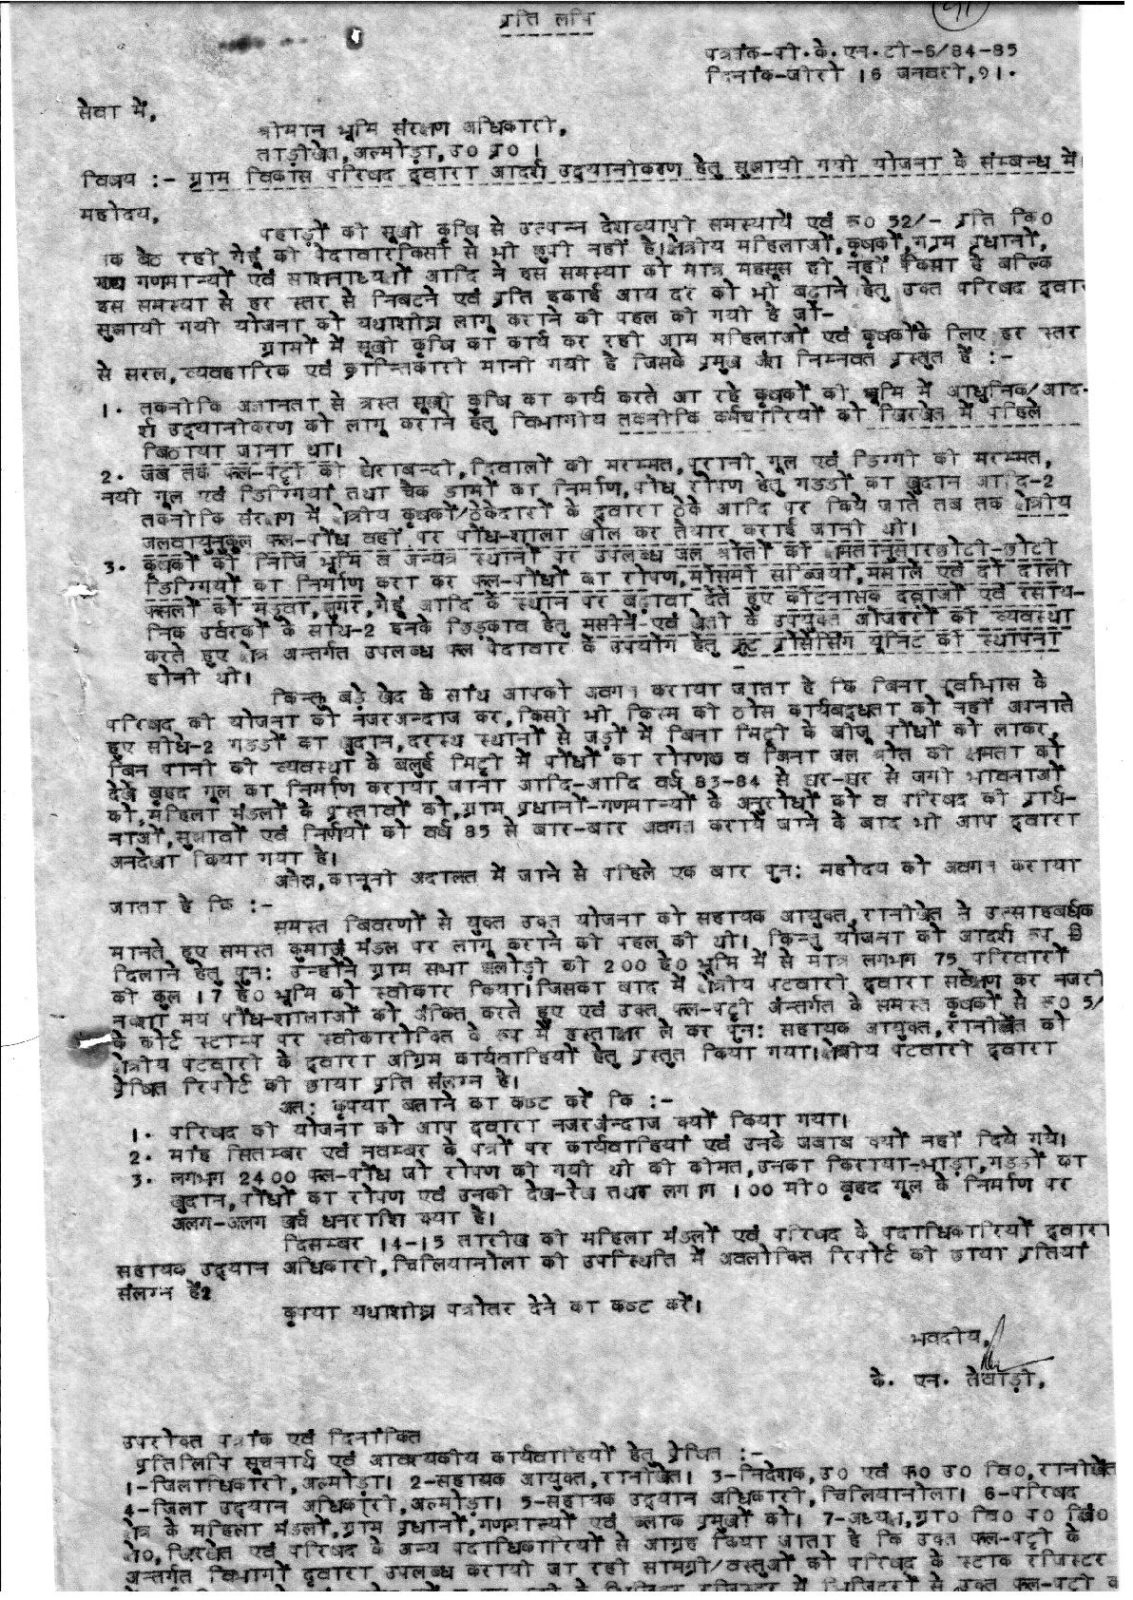 प्रति लिपि
पत्रांक-पी.के.एन.टी-6/84-85
दिनांक-जीरो 16 जनवरी,91.
सेवा में,
श्रीमान भूमि संरक्षण अधिकारी,
ताड़ीखेत,अल्मोड़ा,उ0 प्र0 ।
विषय :- ग्राम विकास परिषद द्वारा आदर्श उद्यानीकरण हेतु सुझायी गयी योजना के संम्बन्ध में
महोदय,
पहाड़ों की सूखी कृषि से उत्पन्न देशव्यापी समस्यायें एवं रू0 52/- प्रति कि0
तक बैठ रही गेहूं की पैदावार किसी से भी छुपी नहीं है। क्षेत्रीय महिलाओं,कृषकों,ग्राम प्रधानों,
गणमान्यों एवं आदि ने इस समस्या को मात्र महसूस ही नहीं किया है बल्कि
इस समस्या से हर स्तर से निबटने एवं प्रति इकाई आय दर को भी बढ़ाने हेतु उक्त परिषद द्वारा
सुझायी गयी योजना को यथाशीघ्र लागू कराने की पहल की गयी है जो-
ग्रामों में सूखी कृषि का कार्य कर रही आम महिलाओं एवं कृषकों के लिए हर स्तर
से सरल,व्यवहारिक एवं क्रान्तिकारी मानी गयी है जिसके प्रमुख अंश निम्नवत प्रस्तुत हैं :-
1. तकनीकि अज्ञानता से त्रस्त सूखी कृषि का कार्य करते आ रहे कृषकों की भूमि में आधुनिक/आद-
र्श उद्यानीकरण को लागू कराने हेतु विभागीय तकनीकि कर्मचारियों को में पहिले
बिठाया जाना था।
2. जब तक फल-पट्टी की घेराबन्दी,दिवालों की मरम्मत,पुरानी गूल एवं डिग्गी की मरम्मत,
नयी गूल एवं डिग्गियां तथा चैक डामों का निर्माण,पौध रोपण हेतु गडडों का खुदान आदि-2
तकनीकि संरक्षण में क्षेत्रीय कृषकों/ठेकेदारों के द्वारा ठेके आदि पर किये जाते तब तक क्षेत्रीय
जलवायुनुकूल फल-पौध वहीं पर पौध-शाला खोल कर तैयार कराई जानी थी।
3. कृषकों की निजि भूमि व अन्यत्र स्थानों पर उपलब्ध जल श्रोतों की क्षमतानुसार छोटी-छोटी
डिग्गियों का निर्माण करा कर फल-पौधों का रोपण,मौसमी सब्जियां,मसाले एवं दो दाली
फसलों को मडुवा, ,गेहूं आदि के स्थान पर बढ़ावा देते हुए कीटनासक दवाओं एवं रसाय-
निक उर्वरकों के साथ-2 इनके छिड़काव हेतु मशीनें एवं खेती के उपयुक्त औजारों की व्यवस्था
करते हुए क्षेत्र अन्तर्गत उपलब्ध फल पैदावार के उपयोग हेतु फ्रूट प्रोसेसिंग यूनिट की स्थापना
होनी थी।
किन्तु बड़े खेद के साथ आपको अवगत कराया जाता है कि बिना पूर्वाभास के
परिषद की योजना को नजरअन्दाज कर,किसी भी किस्म की ठोस कार्यबद्धता को नहीं अपनाते
हुए सीधे-2 गडडों का खुदान,दूरस्थ स्थानों से जड़ों में बिना मिट्टी के बीजू पौधों को लाकर,
बिन पानी की व्यवस्था के बलुई मिट्टी में पौधों का रोपण व बिना जल श्रोत की क्षमता को
देखे बृहद गूल का निर्माण कराया जाना आदि-आदि वर्ष 83-84 से घर-घर से जगी भावनाओं
को,महिला मंडलों के प्रस्तावों को,ग्राम प्रधानों-गणमान्यों के अनुरोधों को व परिषद की प्रार्थ-
नाओं,सुझावों एवं निर्णयों को वर्ष 85 से बार-बार अवगत कराये जाने के बाद भी आप द्वारा
अनदेखा किया गया है।
कानूनी अदालत में जाने से पहिले एक बार पुन: महोदय को अवगत कराया
जाता है कि :-
समस्त बिवरणों से युक्त उक्त योजना को सहायक आयुक्त,रानीखेत ने उत्साहबर्धक
मानते हुए समस्त कुमाऊं मंडल पर लागू कराने की पहल की थी। किन्तु योजना को आदर्श रूप
दिलाने हेतु पुन: उन्होंने ग्राम सभा की 200 है0 भूमि में से मात्र लगभग 75 परिवारों
की कुल 17 है0 भूमि को स्वीकार किया।जिसका बाद में क्षेत्रीय पटवारी द्वारा सर्वेक्षण कर नजरी
नक्शा मय पौध-शालाओं को अंकित करते हुए एवं उक्त फल-पट्टी अन्तर्गत के समस्त कृषकों से रू0 5/
के कोर्ट स्टाम्प पर स्वीकारोक्ति के रूप में हस्ताक्षर ले कर पुन: सहायक आयुक्त,रानीखेत को
क्षेत्रीय पटवारी के द्वारा अग्रिम कार्यवाहियों हेतु प्रस्तुत किया गया।क्षेत्रीय पटवारी द्वारा
प्रेषित रिपोर्ट की छाया प्रति संलग्न है।
अत: कृपया बताने का कष्ट करें कि :-
1. परिषद की योजना को आप द्वारा नजरअंन्दाज क्यों किया गया।
2. माह सितम्बर एवं नवम्बर के पत्रों पर कार्यवाहियां एवं उनके जवाब क्यों नहीं दिये गये।
3. लगभग 2400 फल-पौध जो रोपण की गयी थी की कीमत,उनका किराया-भाड़ा,गडडों का
खुदान,पौधों का रोपण एवं उनकी देख-रेख तथा लगभग 100 मी0 बृहद गूल के निर्माण पर
अलग-अलग खर्च धनराशि क्या है।
दिसम्बर 14-15 तारीख की महिला मंडलों एवं परिषद के पदाधिकारियों द्वारा
सहायक उद्यान अधिकारी,चिलियानौला की उपस्थिति में अवलोकित रिपोर्ट की छाया प्रतियां
संलग्न हैं।
कृपया यथाशीघ्र पत्रोतर देने का कष्ट करें।
भवदीय,
के. एन. तेवाड़ी,
उपरोक्त पत्रांक एवं दिनांकित
प्रतिलिपि सूचनार्थ एवं आवश्यकीय कार्यवाहियों हेतु प्रेषित :-
1-जिलाधिकारी,अल्मोड़ा। 2-सहायक आयुक्त,रानीखेत। 3-निदेशक,उ0 एवं फ0 उ0 वि0,रानीखेत
4-जिला उद्यान अधिकारी,अल्मोड़ा। 5-सहायक उद्यान अधिकारी,चिलियानौला। 6-परिषद
क्षेत्र के महिला मंडलों,ग्राम प्रधानों,गणमान्यों एवं ब्लाक प्रमुखों को। 7-अध्यक्ष,ग्रा0 वि0 प0
एवं परिषद के अन्य पदाधिकारियों से आग्रह किया जाता है कि उक्त फल-पट्टी के
अन्तर्गत विभागों द्वारा उपलब्ध करायी जा रही सामग्री/वस्तुओं को परिषद के स्टाक रजिस्टर